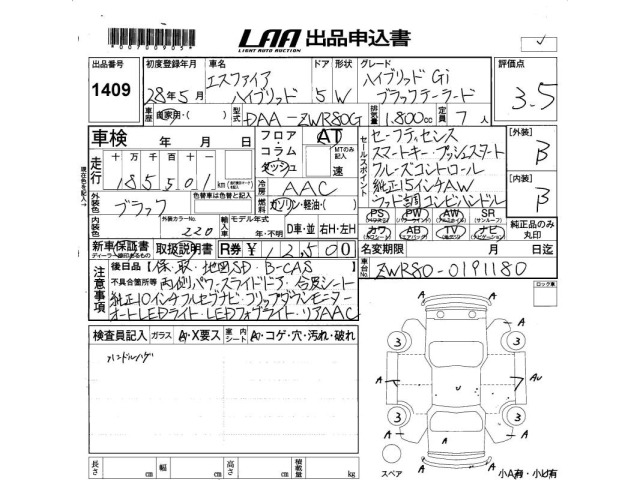 *00700905*
LAA 出品申込書
LIGHT AUTO AUCTION
出品番号 1409
初度登録年月 車名 ドア 形状 グレード 評価点
28年5月 エスクァイア ハイブリッド 5 W ハイブリッド Gi ブラックテーラード 3.5
車歴 自家用・( ) 型式 DAA-ZWR80G 排気量 1.800cc 定員 7人
車検 年 月 日
フロア・コラム・ダッシュ AT MTのみ記入 速
走行 十万 万 千 百 十 一
185501 km
冷房 AAC
燃料 ガソリン・軽油・( )
外装色 ブラック 色替車は色替と記入
外装カラーNo. 220
輸入車 モデル年式 年・不明 D車・並 右H・左H
セールスポイント
セーフティセンス
スマートキー・プッシュスタート
クルーズコントロール
純正15インチAW
ウッド調コンビハンドル
[外装] B
[内装] B
PS PW AW SR (サンルーフ)
カワ AB TV ナビ
純正品のみ丸印
新車保証書 取扱説明書 R券 ¥12,500
ディーラー捺印あるもの
名変期限 月 日迄
車台No. ZWR80-0191180
注意事項
後日品【保・取・地図SD・B-CAS】
不具合箇所等 両側パワースライドドア・合皮シート
純正10インチフルセグナビ・フリップダウンモニター
オートLEDライト・LEDフォグライト・リアAAC
ロック車
検査員記入 ガラス A・X要ス 室内シート A・コゲ・穴・汚れ・破れ
ハンドルハゲ
A
3 3
A U AU
3 3
A A
A A
スペア
小A有・小U有
長さ cm 幅 cm 高さ cm 積載量 kg